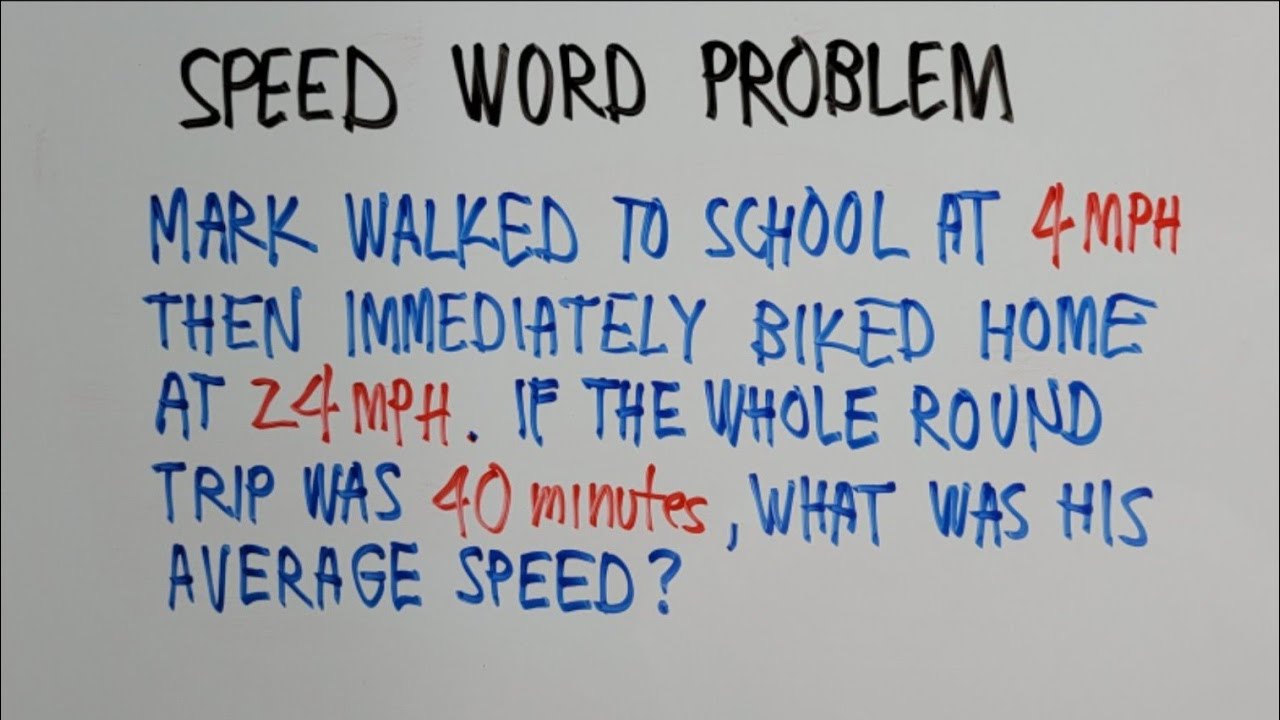 SPEED WORD PROBLEM
MARK WALKED TO SCHOOL AT 4 MPH
THEN IMMEDIATELY BIKED HOME
AT 24 MPH. IF THE WHOLE ROUND
TRIP WAS 40 minutes, WHAT WAS HIS
AVERAGE SPEED?